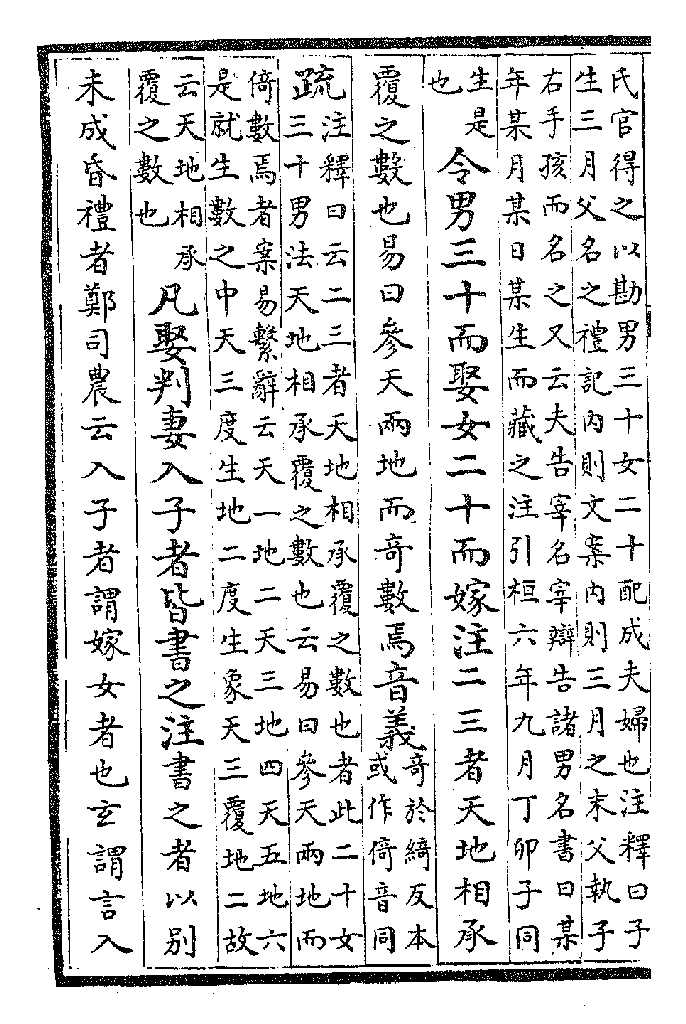 氏官得之以勘男三十女二十配成夫婦也注釋曰子
生三月父名之禮記內則文案內則三月之末父執子
右手孩而名之又云夫告宰名宰辯告諸男名書曰某
年某月某日某生而藏之注引桓六年九月丁卯子同
生是
也
令男三十而娶女二十而嫁注二三者天地相承
覆之數也易曰參天兩地而奇數焉音義
奇於綺反本
或作倚音同
疏
注釋曰云二三者天地相承覆之數也者此二十女
三十男法天地相承覆之數也云易曰參天兩地而
倚數焉者案易繫辭云天一地二天三地四天五地六
是就生數之中天三度生地二度生象天三覆地二故
云天地相承
覆之數也
凡娶判妻入子者皆書之注書之者以別
未成昏禮者鄭司農云入子者謂嫁女者也玄謂言入